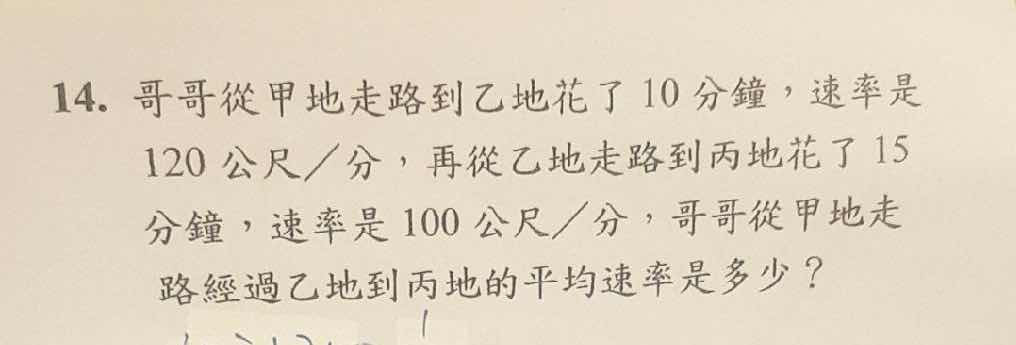 14. 哥哥從甲地走路到乙地花了 10 分鐘，速率是
120 公尺／分，再從乙地走路到丙地花了 15
分鐘，速率是 100 公尺／分，哥哥從甲地走
路經過乙地到丙地的平均速率是多少？